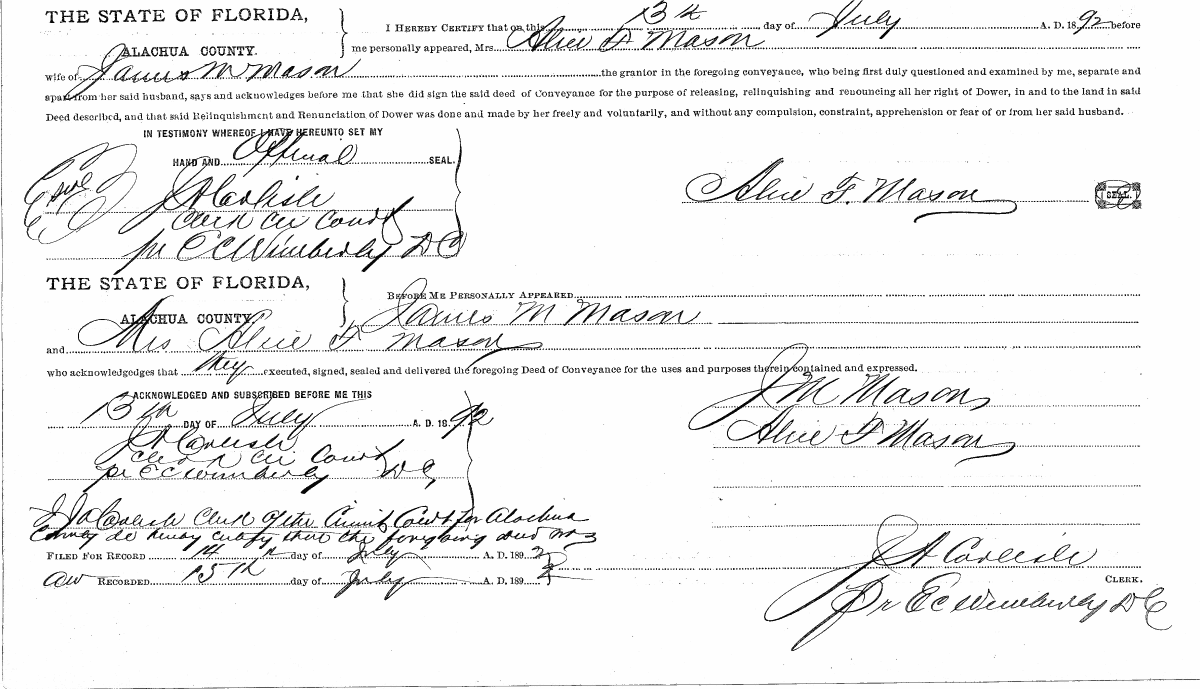 THE STATE OF FLORIDA,
ALACHUA COUNTY.
I HEREBY CERTIFY that on this 13th day of July A. D. 1892 before
me personally appeared, Mrs. Alice F Mason
wife of James M Mason the grantor in the foregoing conveyance, who being first duly questioned and examined by me, separate and
apart from her said husband, says and acknowledges before me that she did sign the said deed of Conveyance for the purpose of releasing, relinquishing and renouncing all her right of Dower, in and to the land in said
Deed described, and that said Relinquishment and Renunciation of Dower was done and made by her freely and voluntarily, and without any compulsion, constraint, apprehension or fear of or from her said husband.
IN TESTIMONY WHEREOF I HAVE HEREUNTO SET MY
HAND AND Official SEAL.
Seal
J A Carlisle
Clerk Cir Court
pr E C Wimberly D C
Alice F. Mason SEAL.
THE STATE OF FLORIDA,
ALACHUA COUNTY
BEFORE ME PERSONALLY APPEARED
James M Mason
and Mrs Alice F Mason
who acknowledges that they executed, signed, sealed and delivered the foregoing Deed of Conveyance for the uses and purposes therein contained and expressed.
ACKNOWLEDGED AND SUBSCRIBED BEFORE ME THIS
13th DAY OF July A. D. 1892
J A Carlisle
Clerk Cir Court
pr E C Wimberly D C
J M Mason
Alice F Mason
I J A Carlisle Clerk of the Circuit Court for Alachua
County do hereby certify that the foregoing deed was
FILED FOR RECORD 14th day of July A. D. 1892
RECORDED 15th day of July A. D. 1892
J A Carlisle
CLERK.
Pr E C Wimberly D C